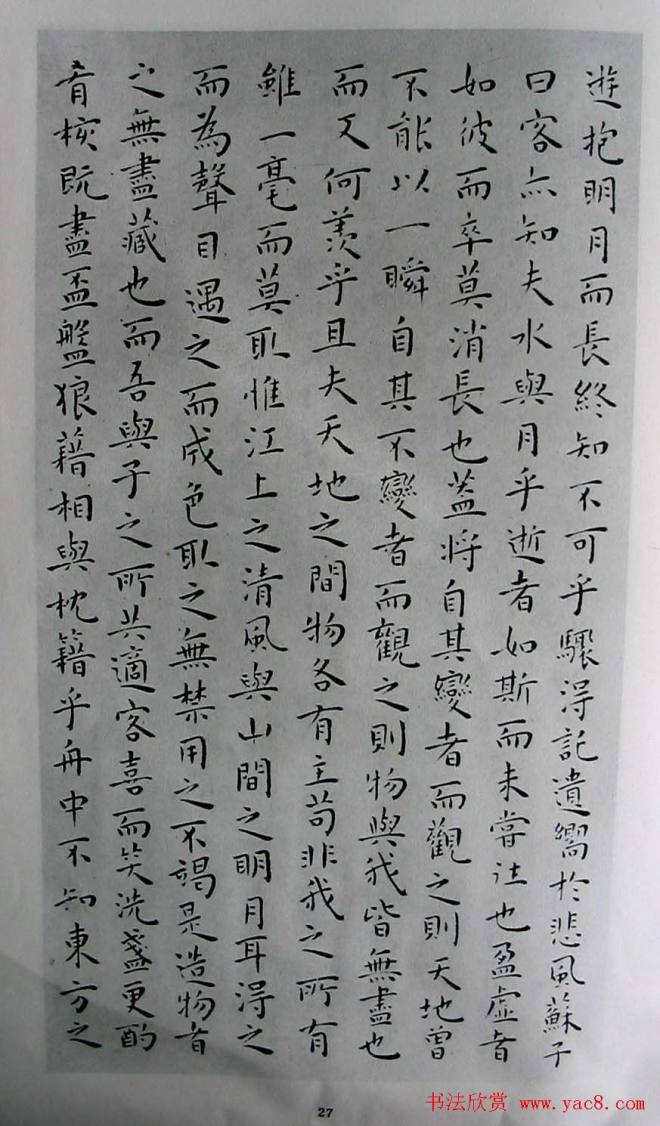 遊抱明月而長終知不可乎驟得託遺響於悲風蘇子
曰客亦知夫水與月乎逝者如斯而未嘗往也盈虛者
如彼而卒莫消長也蓋將自其變者而觀之則天地曾
不能以一瞬自其不變者而觀之則物與我皆無盡也
而又何羨乎且夫天地之間物各有主苟非我之所有
雖一毫而莫取惟江上之清風與山間之明月耳得之
而為聲目遇之而成色取之無禁用之不竭是造物者
之無盡藏也而吾與子之所共適客喜而笑洗盞更酌
肴核既盡盃盤狼藉相與枕籍乎舟中不知東方之
27
书法欣赏 www.yac8.com